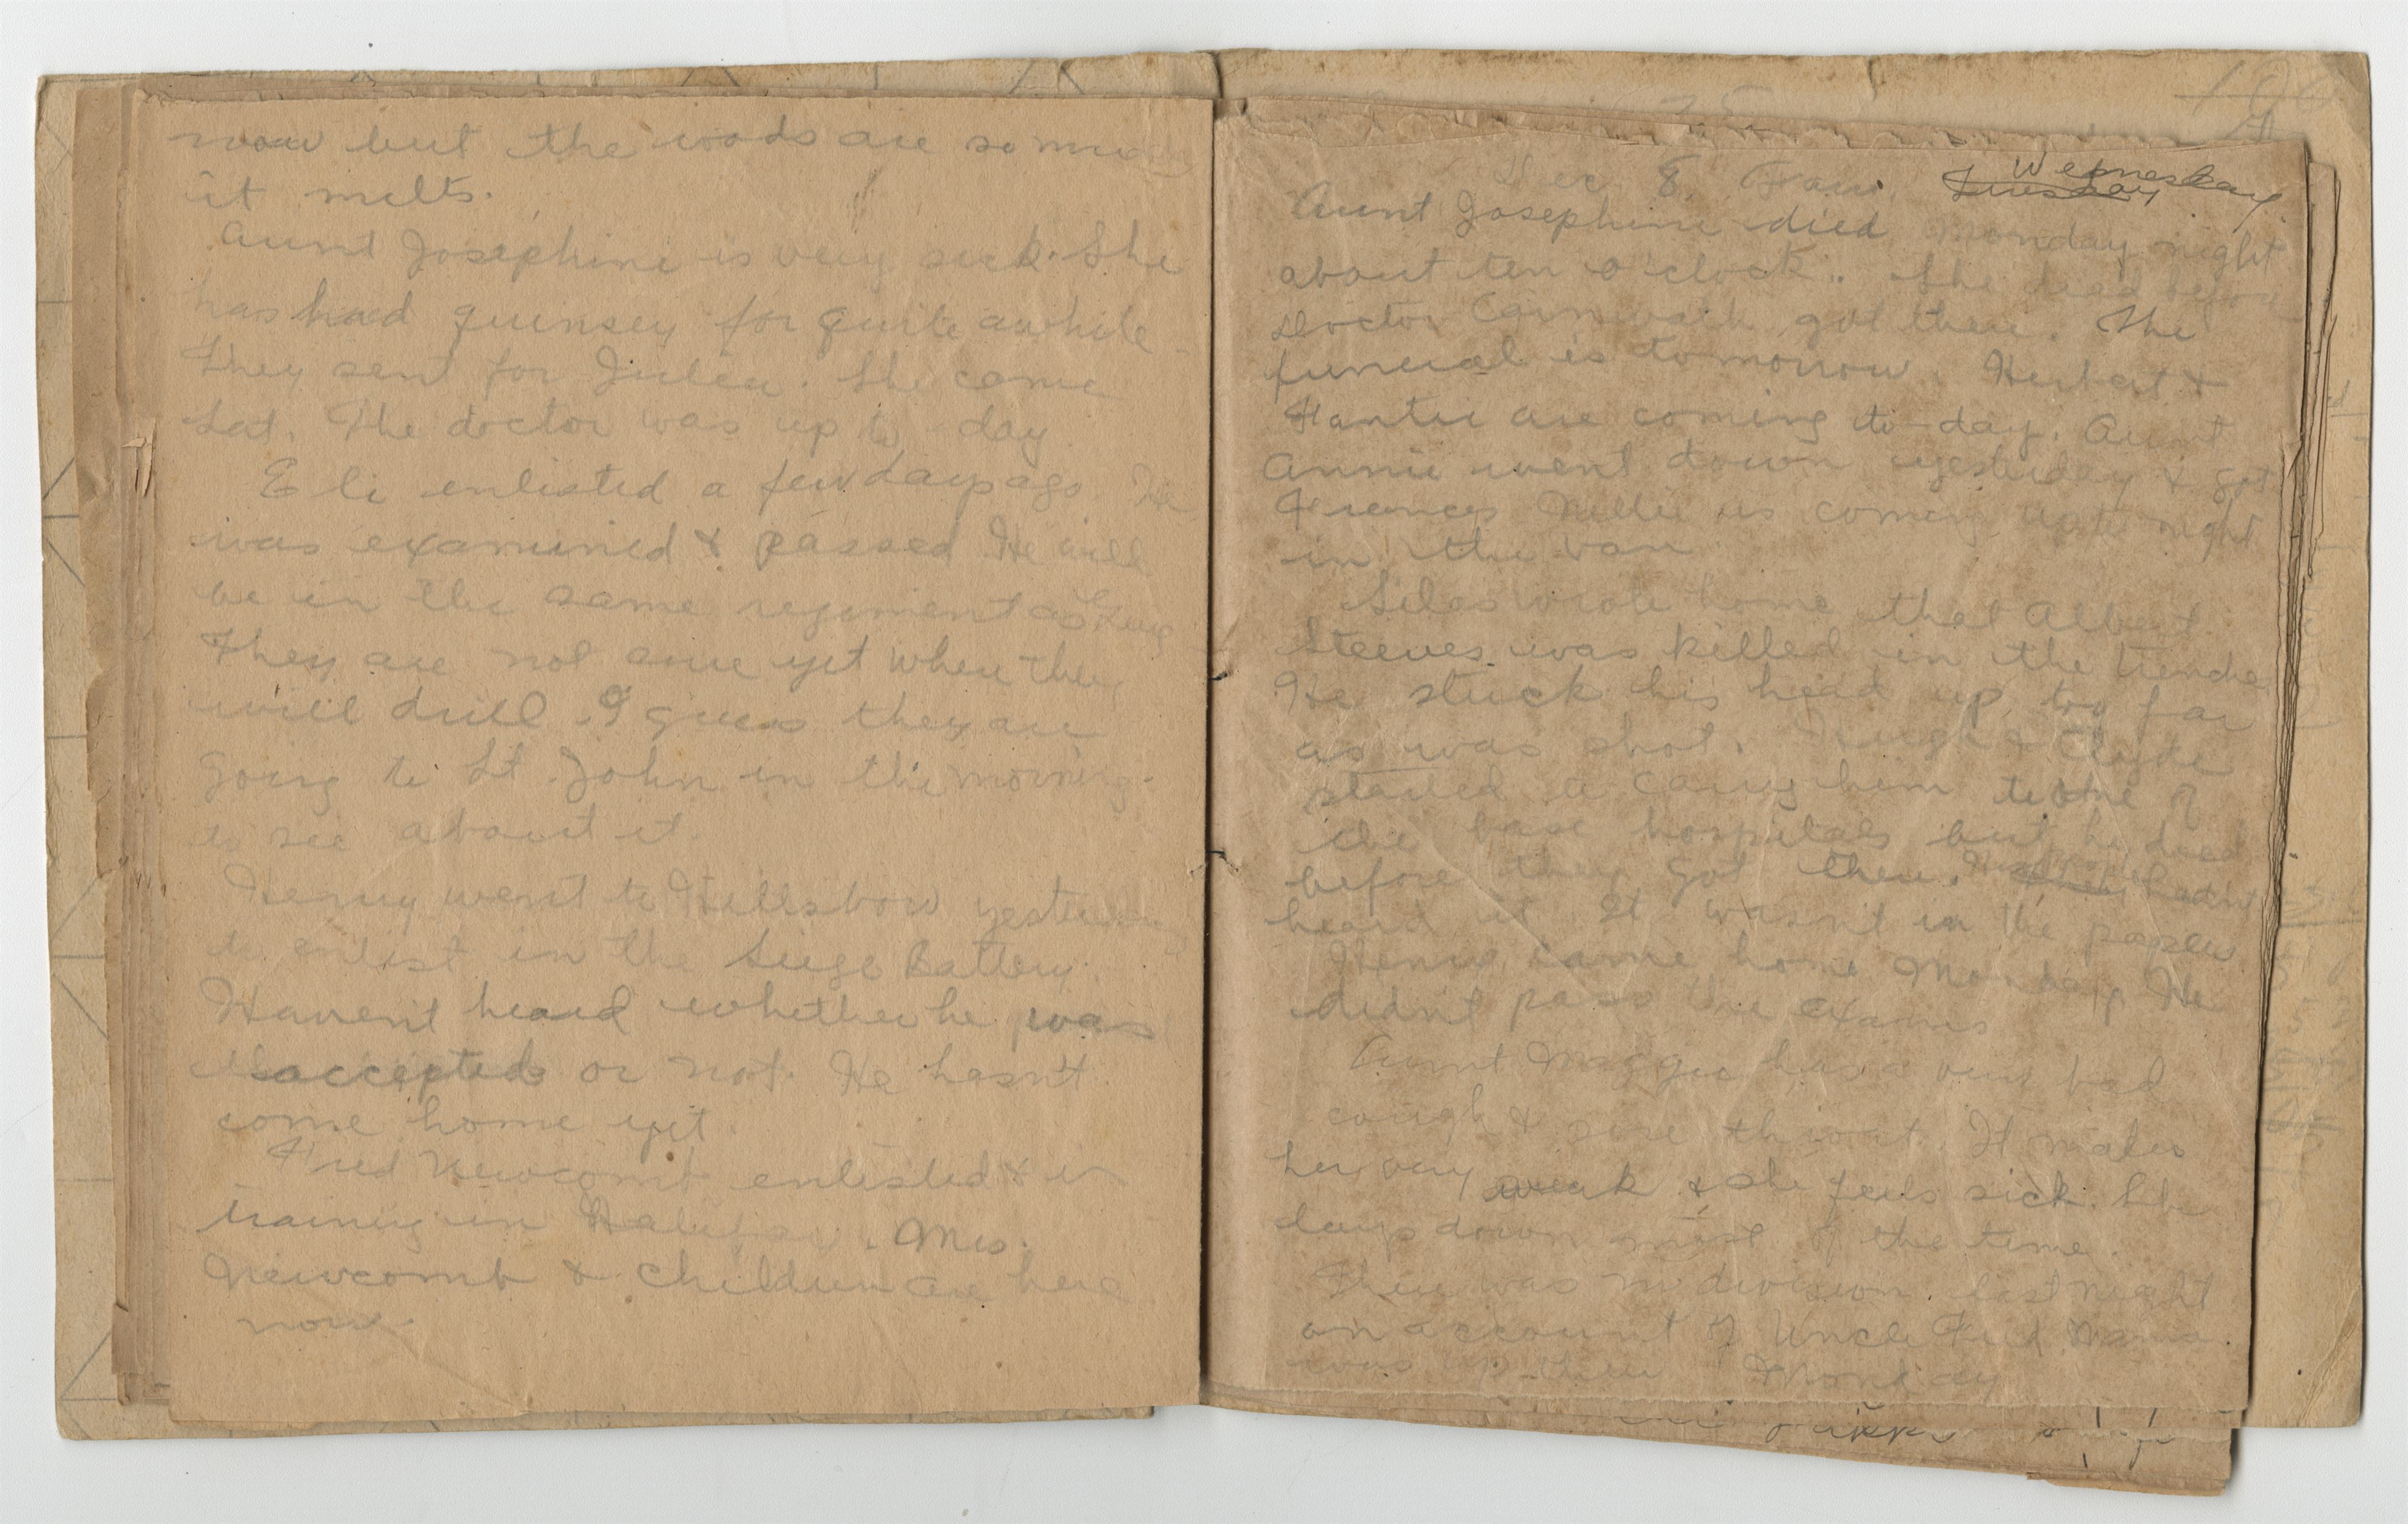 now but the roads are so muddy
it melts.
Aunt Josephine is very sick. She
has had quinsey for quite awhile
They sent for Julia. She came
Sat. The doctor was up to-day.
Eli enlisted a few days ago He
was examined & passed He will
be in the same regiment as
They are not sure yet when they
will drill. I guess they are
going to St. John in the morning
to see about it.
Henry went to Hillsboro yesterday
to enlist in the Siege Battery.
Havent heard whether he was
accepted or not. He hasn't
come home yet.
Fred Newcomb enlisted & is
training in Halifax. Mrs.
Newcomb & children are here
now.
Dec 8. Fair. Tuesday Wednesday
Aunt Josephine died Monday night
about ten o'clock. She died before
Doctor Carnwath got there. The
funeral is tomorrow. Herbert &
are coming to-day. Aunt
Annie went down yesterday & got
Frances Nellie is coming up to night
in the van
Silas wrote home that Albert
Steeves was killed in the trenches
He stuck his head up too far
as was shot. Hugh & Clyde
started to carry him to one of
the base hospitals but he died
before they got there. hadn't
heard it It wasn't in the papers
Henry came home Monday. He
didn't pass the exams
Aunt Maggie has a very bad
cough & sore throat. It makes
her very weak & she feels sick. She
lays down most of the time.
There was no division last night
on account of Uncle Fred.
was up there Monday